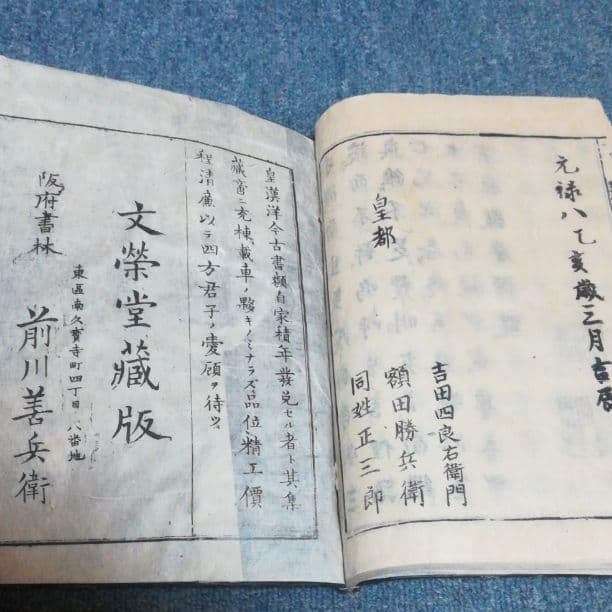 元禄八乙亥歳三月吉辰
皇都
吉田四良右衛門
額田勝兵衛
同姓正三郎
皇漢洋今古書額自家積年發兌セル者ト其集
藏畜ニ充棟載車ノ夥キノミナラズ品位ノ精工價
程清廉以テ四方君子ノ愛顧ヲ待ツ
文榮堂藏版
阪府書林
東區南久寳寺町四丁目八番地
前川善兵衛